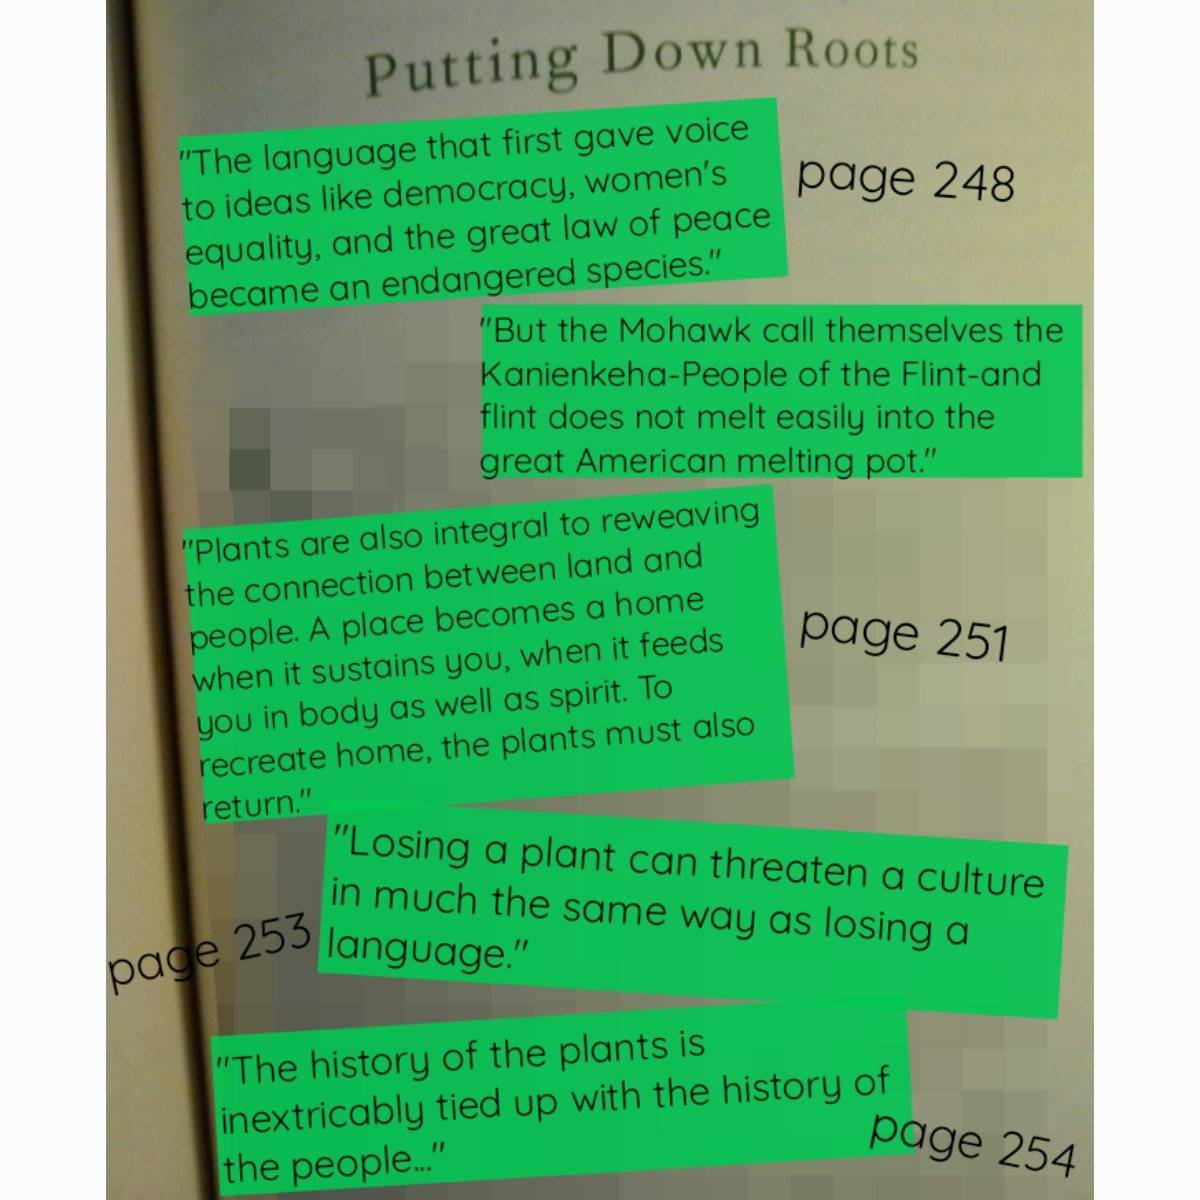 Putting Down Roots
"The language that first gave voice
to ideas like democracy, women's
equality, and the great law of peace
became an endangered species."
page 248
"But the Mohawk call themselves the
Kanienkeha-People of the Flint-and
flint does not melt easily into the
great American melting pot."
"Plants are also integral to reweaving
the connection between land and
people. A place becomes a home
when it sustains you, when it feeds
you in body as well as spirit. To
recreate home, the plants must also
return."
page 251
"Losing a plant can threaten a culture
in much the same way as losing a
language."
page 253
"The history of the plants is
inextricably tied up with the history of
the people..."
page 254